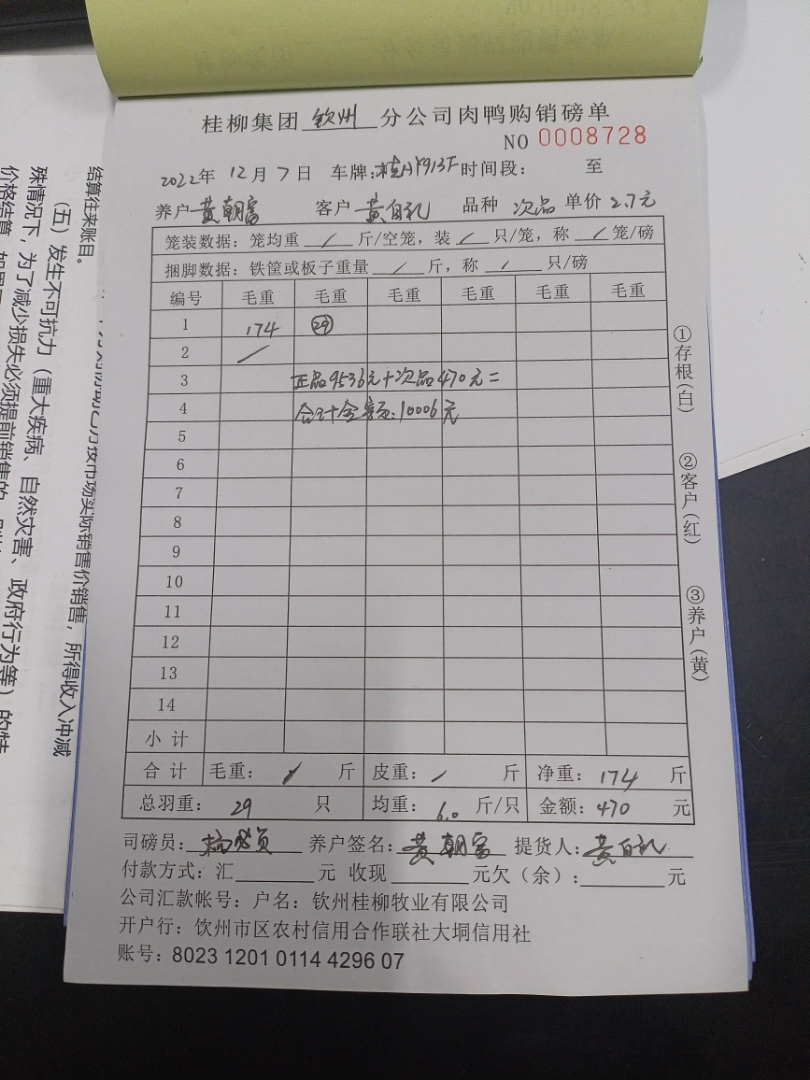 桂柳集团 钦州 分公司肉鸭购销磅单
NO 0008728
2022年 12月 7日 车牌: 时间段: 至
养户 黄朝富 客户 黄自礼 品种 次品 单价 2.7元
笼装数据：笼均重 / 斤/空笼，装 / 只/笼，称 / 笼/磅
捆脚数据：铁筐或板子重量 / 斤，称 / 只/磅
编号 毛重 毛重 毛重 毛重 毛重 毛重
1 174 29
2 /
3 正品9536元+次品470元=
4 合计金额:10006元
5
6
7
8
9
10
11
12
13
14
小计
合计 毛重: / 斤 皮重: / 斤 净重: 174 斤
总羽重: 29 只 均重: 6.0 斤/只 金额: 470 元
司磅员: 养户签名: 黄朝富 提货人: 黄自礼
付款方式: 汇 元 收现 元欠（余）: 元
公司汇款帐号: 户名: 钦州桂柳牧业有限公司
开户行: 钦州市区农村信用合作联社大垌信用社
账号: 8023 1201 0114 4296 07
①存根(白)
②客户(红)
③养户(黄)
结算往来账目。
（五）发生不可抗力（重大疾病、自然灾害、政府行为等）的特
殊情况下，为了减少损失必须提前销售的，
市场实际销售价销售，所得收入冲减
价格结算